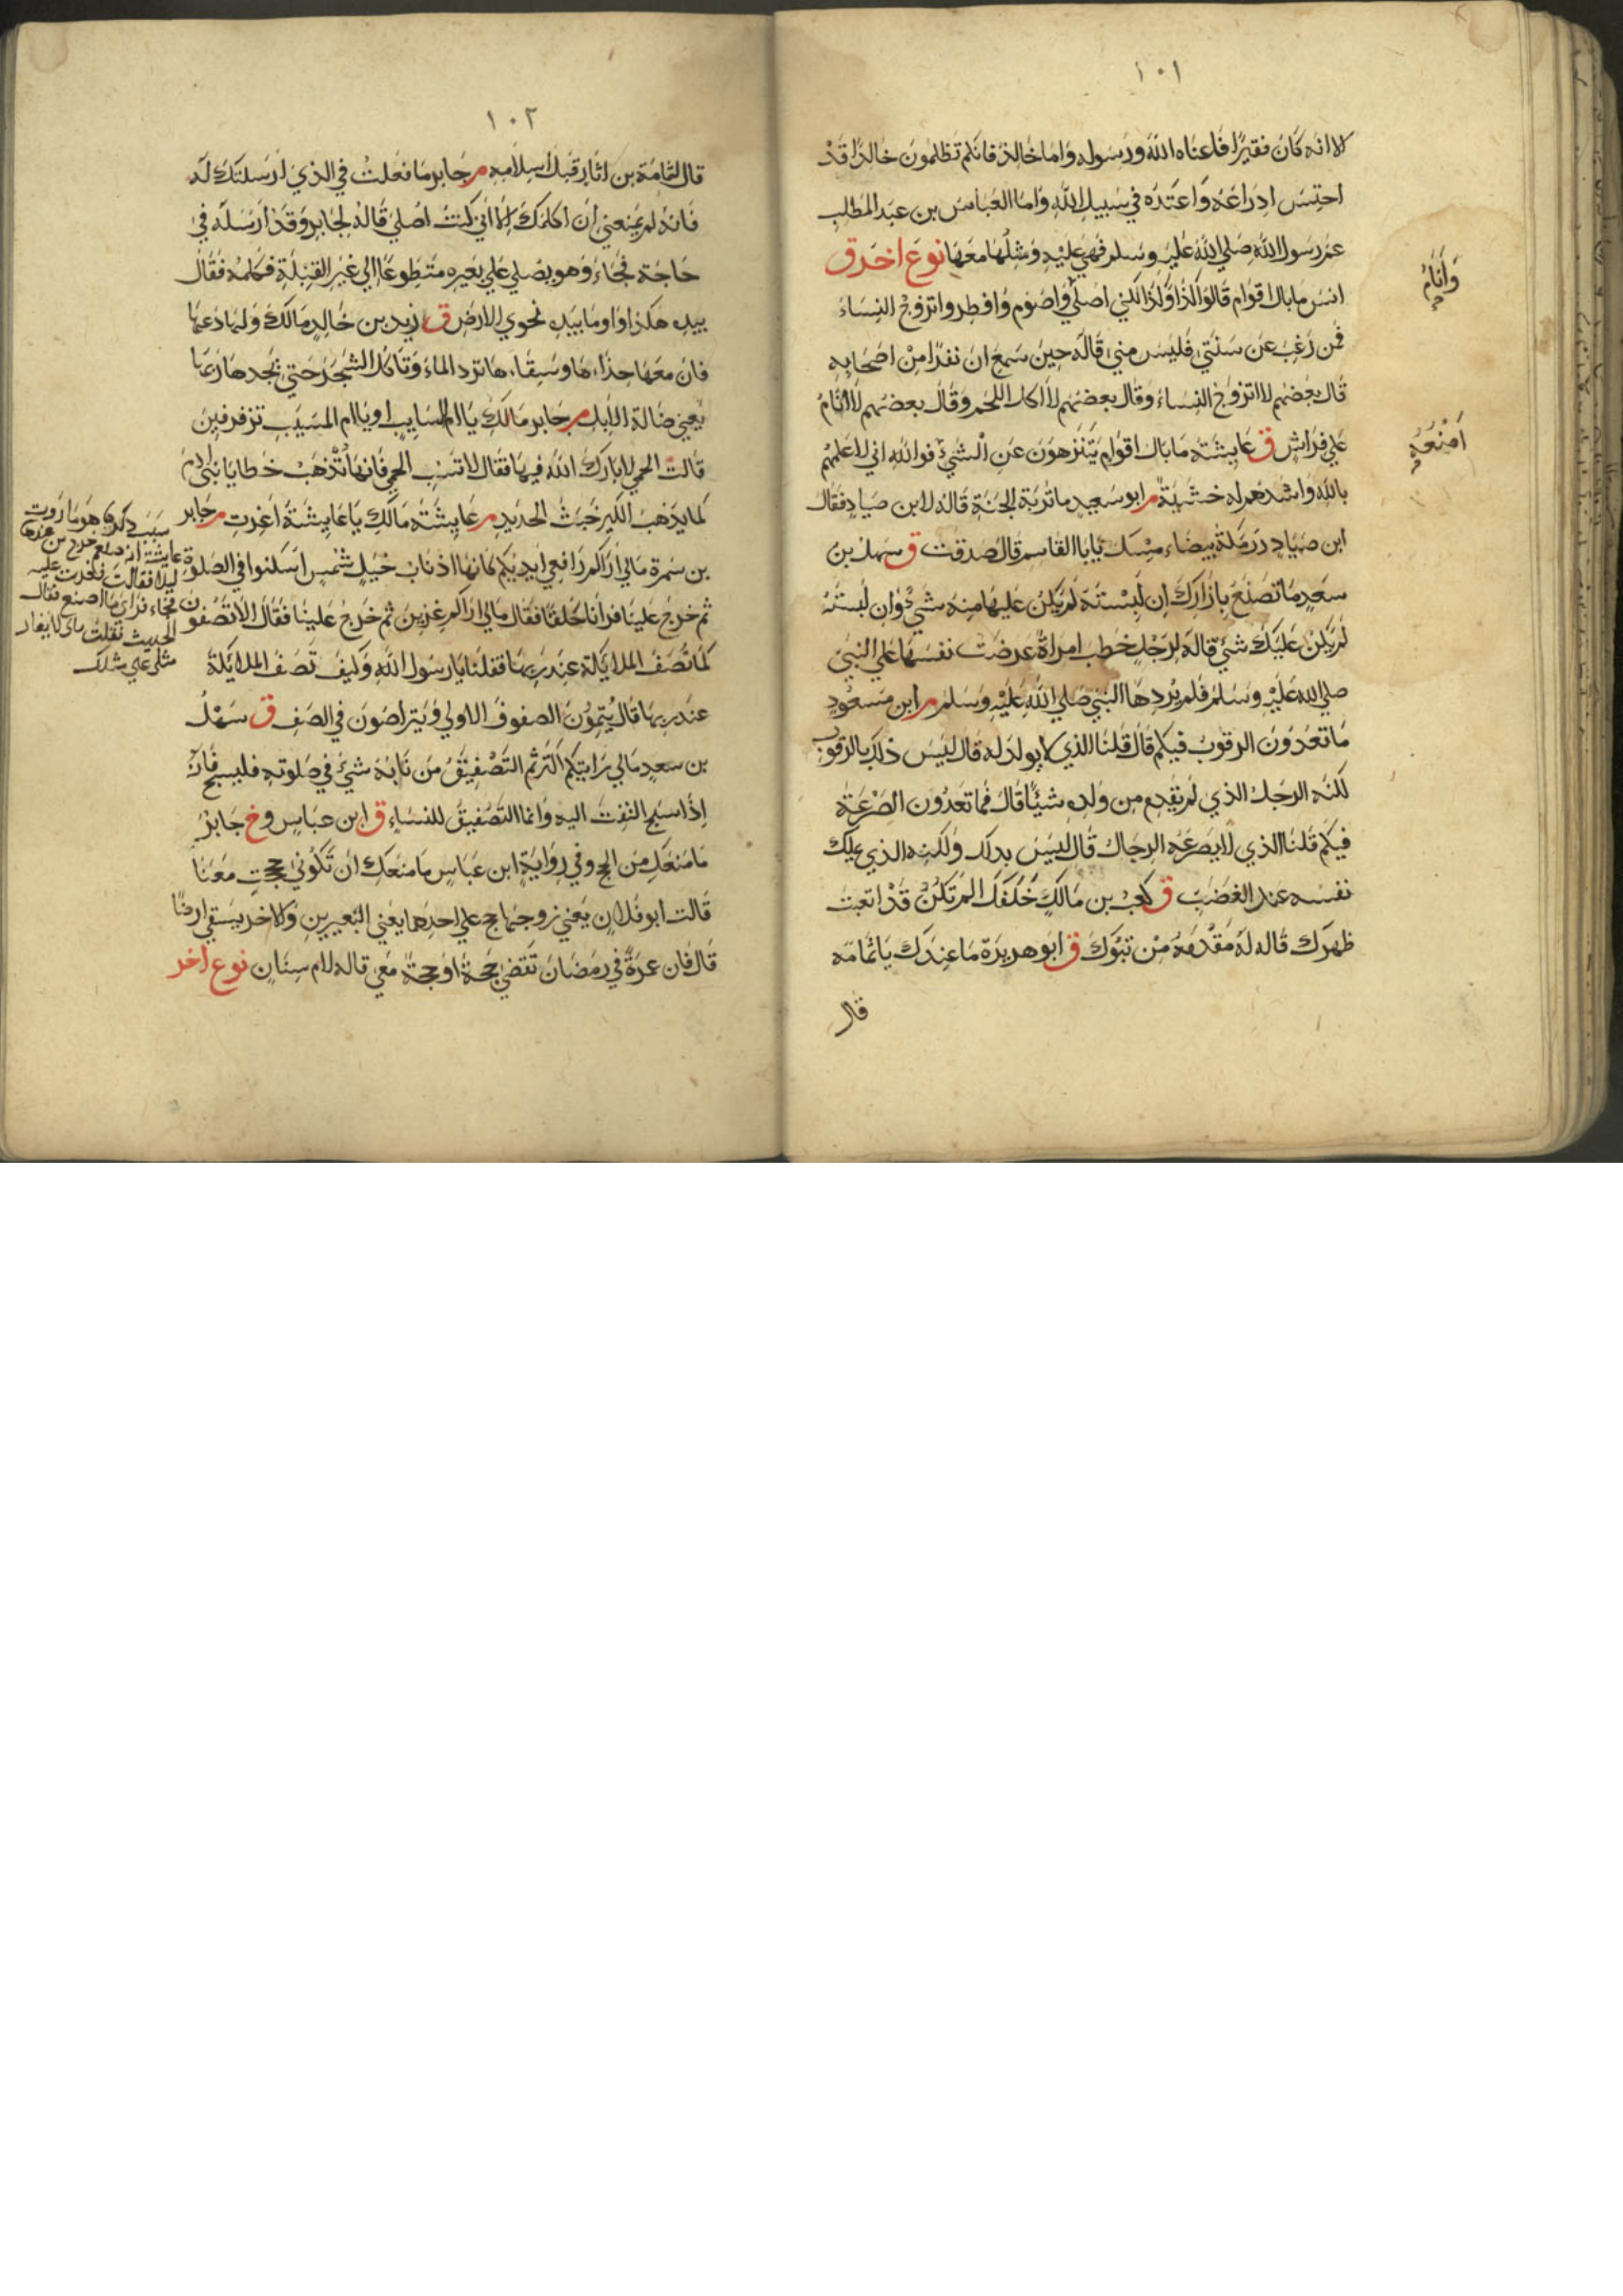 ١٠١
الا انه كان فقيرا فاغناه الله ورسوله واما خالد فانكم تظلمون خالدا قد
احتبس ادراعه واعتده في سبيل الله واما العباس بن عبد المطلب
عم رسول الله صلي الله عليه وسلم فهي عليه ومثلها معها نوع اخر ق
انس ما بال اقوام قالوا كذا وكذا لكني اصلي واصوم وافطر واتزوج النساء
وَاَنَامُ
فمن رغب عن سنتي فليس مني قاله حين سمع ان نفرا من اصحابه
قال بعضهم لا اتزوج النساء وقال بعضهم لا اكل اللحم وقال بعضهم لا انام
علي فراش ق عايشة ما بال اقوام يتنزهون عن الشيء فوالله اني لاعلمهم
اَصْنَعُهُ
بالله واشدهم له خشية م ابو سعيد ما تربة الجنة قاله لابن صياد فقال
ابن صياد درمكة بيضاء مسك يا با القاسم قال صدقت ق سهل بن
سعد ما تصنع بازارك ان لبسته لم يكن عليها منه شيء وان لبسته
لم يكن عليك شيء قاله لرجل خطب امراة عرضت نفسها علي النبي
صلي الله عليه وسلم فلم يردها النبي صلي الله عليه وسلم م ابن مسعود
ما تعدون الرقوب فيكم قال قلنا الذي لا يولد له قال ليس ذلك بالرقوب
لكنه الرجل الذي لم يقدم من ولده شيئا قال فما تعدون الصرعة
فيكم قلنا الذي لا يصرعه الرجال قال ليس بذلك ولكنه الذي يملك
نفسه عند الغضب ق كعب بن مالك خلفك الم تكن قد ابتعت
ظهرك قاله له مقدمه من تبوك ق ابو هريرة ما عندك يا ثمامه
قال
١٠٢
قال لثمامة بن اثال قبل اسلامه م جابر ما فعلت في الذي ارسلتك له
فانه لم يمنعني ان اكلمك الا اني كنت اصلي قاله لجابر وقد ارسله في
حاجة فجاء وهو يصلي علي بعيره متطوعا الي غير القبلة فكلمه فقال
بيده هكذا واوما بيده نحو الارض ق زيد بن خالد مالك ولها دعها
فان معها حذاءها وسقاءها ترد الماء وتاكل الشجر حتي يجدها ربها
يعني ضالة الابل م جابر مالك يا ام السايب او يا ام المسيب تزفزفين
قالت الحمي لا بارك الله فيها فقال لا تسبي الحمي فانها تذهب خطايا بني ادم
كما يذهب الكير خبث الحديد م عايشة مالك يا عايشة اغرت م جابر
بن سمرة مالي اراكم رافعي ايديكم كانها اذناب خيل شمس اسكنوا في الصلوة
ثم خرج علينا فرانا حلقا فقال مالي اراكم عزين ثم خرج علينا فقال الا تصفون
كما تصف الملايكة عند ربها فقلنا يا رسول الله وكيف تصف الملايكة
عند ربها قال يتمون الصفوف الاولي ويتراصون في الصف ق سهل
بن سعد مالي رايتكم اكثرتم التصفيق من نابه شيء في صلوته فليسبح فانه
اذا سبح التفت اليه وانما التصفيق للنساء ق ابن عباس وخ جابر
ما منعك من الحج وفي رواية ابن عباس ما منعك ان تكوني حججت معنا
قالت ابو فلان يعني زوجها حج علي احدهما يعني البعيرين والاخر يسقي ارضا
قال فان عمرة في رمضان تقضي حجة او حجة معي قاله لام سنان نوع اخر
سبب ذكره هو ما روت
عايشة انه صلعم خرج من عندها
ليلا فقالت فغرت عليه
فجاء فراي ما اصنع فقال
الحديث فقلت مالي لا يغار
مثلي علي مثلك